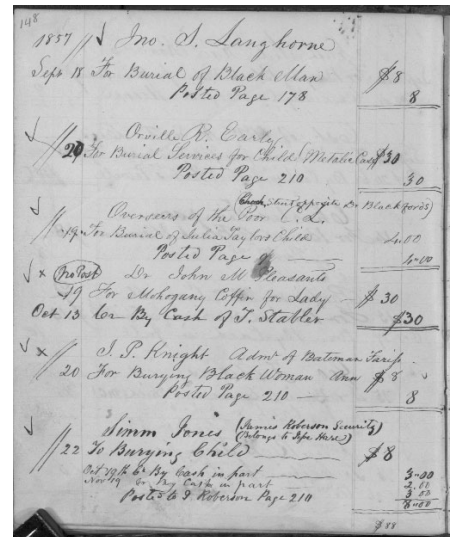 148
1857 // √ Jno. S. Langhorne
Sept 18 For Burial of Black Man $8
Posted Page 178 8
√ Orville R. Early
// 20 For Burial Services for Child (Metalic Case) $30
Posted Page 210 30
√ Overseers of the Poor C. L. (Church Street opposite Dr Blackfords)
// 19 For Burial of Julia Taylors Child 4.00
Posted Page 4.00
√ x (No Post) Dr John M Pleasants
19 For Mohogany Coffin for Lady $30
Oct 13 Cr By Cash of T. Stabler $30
√ x J. P. Knight Admr of Bateman
// 20 For Burying Black Woman Ann $8
Posted Page 210 8
√ Simm Jones (James Roberson Security)
(Belongs to Hare)
// 22 To Burying Child $8
Oct 12th Cr By Cash in part 3.00
Nov 19 Cr By Cash in part 2.00
3.00
Posted to J Roberson Page 210 8.00
$88